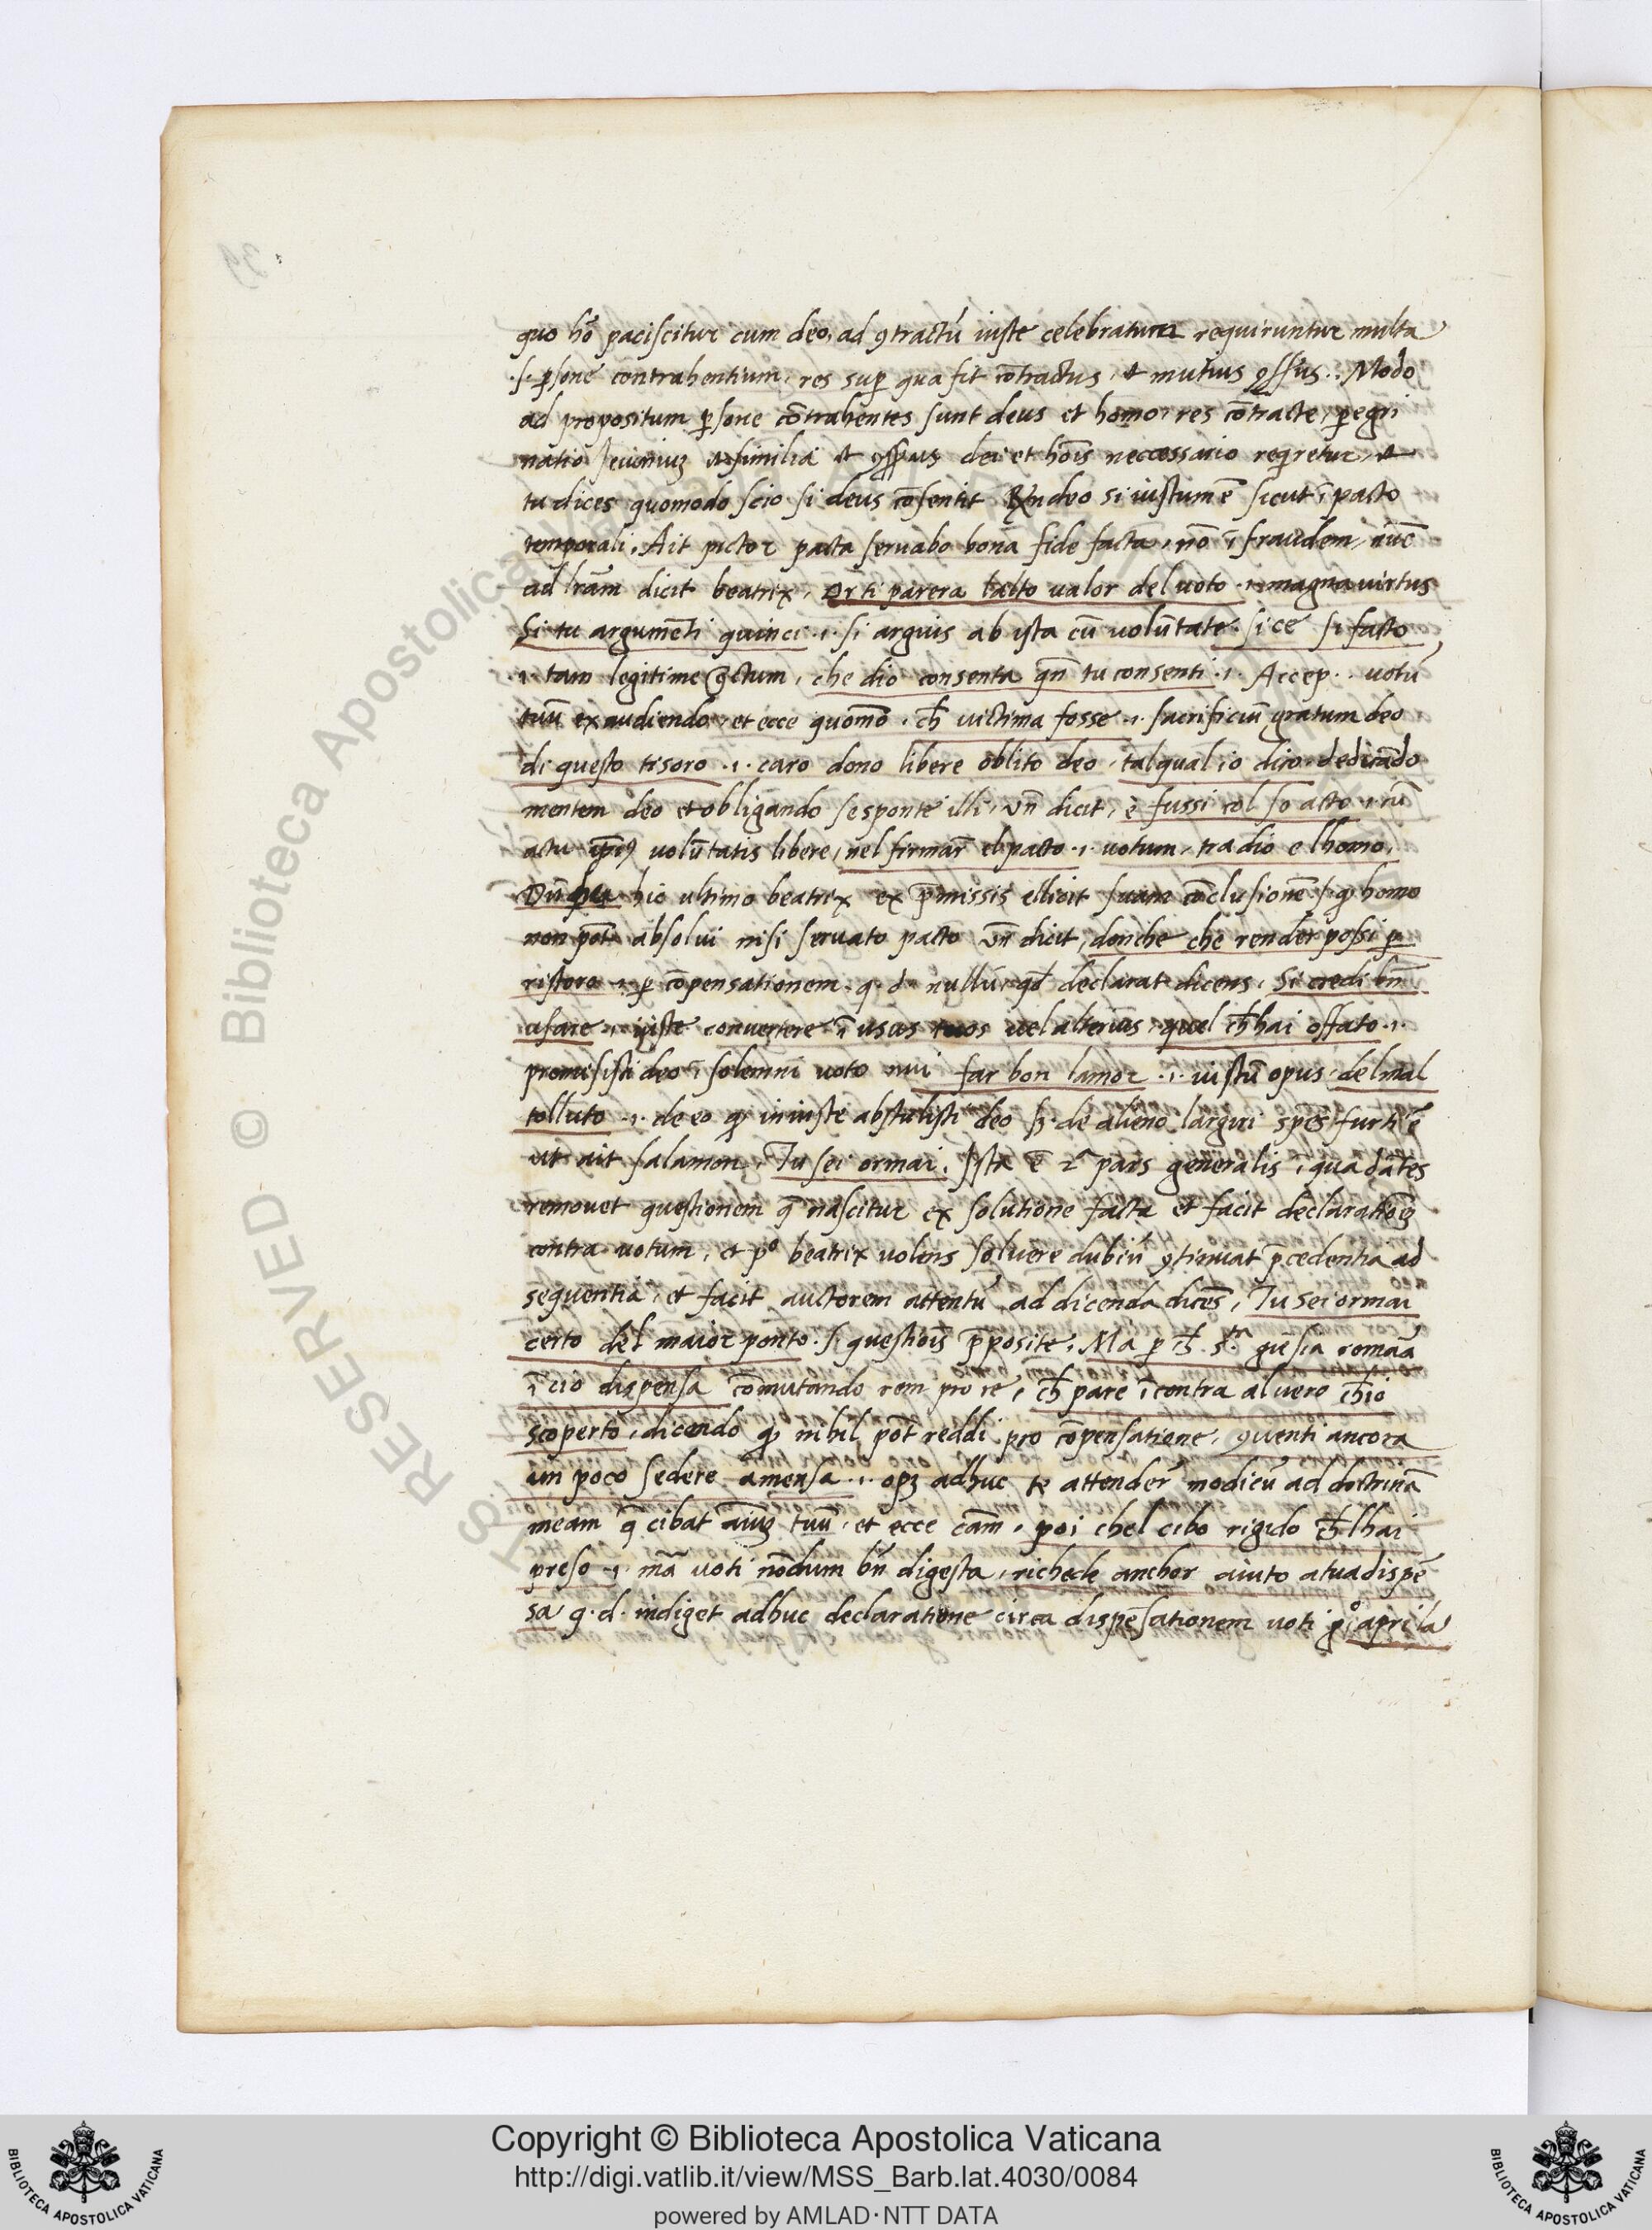 39
quo hō paciscitur cum deo, ad ꝯtractū iuste celebratum requiruntur multa
.s. ꝑsone contrahentium, res sup qua fit cōtractus, et mutuus ꝯssus. Modo
ad propositum ꝑsone cōtrahentes sunt deus et homo, res cōtracte, ꝑegri
natio Jeiuniuȝ et similia et ꝯssus dei et hoīs neccessario reqꝛetur, et
tu dices quomodo scio si deus cōsentit Rndeo si iustum ē sicut ī pacto
temporali. Ait pictor pacta seruabo bona fide facta, nō ī fraudem, nūc
ad lr̄am dicit beatrix, Or ti parera lalto ualor del uoto .i. magna uirtus
Si tu argumēti quinci .i. si arguis ab ista cū volūtate. si ce si facto
.i. tam legitime ꝯctum, che dio consenta qn̄ tu consenti .i. Accep. uotū
tuū exaudiendo, et ecce quomō. ch̄ uictima fosse .i. sacrificiū gratum deo
di questo tesoro .i. caro dono libere oblito deo, tal qual io dico. dedicādo
mentem deo et obligando se sponte illi, vn̄ dicit, e fussi col so acto .i. cū
actu ip̄iꝰ volūtatis libere, nel firmar el pacto .i. uotum, tra dio e lhomo.
Dūque hic ultimo beatrix ex p̄missis ellicit suam cōclusionē .s. ꝙ homo
non pōt absolui nisi seruato pacto vn̄ dicit, donche che render possi ꝑ
ristoro .i. ꝑ cōpensationem. q. d. nullū, qd̄ declarat dicens, Si credi bn̄
usare .i. iuste convertere ī usus tuos uel alterius, quel ch̄ hai offato .i.
promisisti deo ī solemni uoto uui far bon lamor .i. iustū opus, del mal
tolluto .i. de eo ꝙ iniuste abstulisti deo sȝ de alieno largiri spēs furti ē
ut ait salamon, Tu sei ormai. Ista ē 2ᵃ pars generalis, qua dātes
remouet questionem q̄ nascitur ex solutione facta et facit declarationē
contra uotum, et pº beatrix volens soluere dubiū ꝯtinuat p̄cedentia ad
sequentia, et facit auctorem attentū ad dicenda dicēs, Tu sei ormai
certo del maior ponto .s. questiōis p̄posite, Ma ꝑ ch̄ s.ᵗᵃ giesia romāa
ī cio dispensa cōmutando rem pro re, ch̄ pare īcontra al uero ch̄ io
scoperto, dicendo ꝙ nihil pōt reddi pro cōpensatione, ꝯuenti ancora
un poco sedere a mensa .i. opȝ adhuc te attendere modicū ad doctrinā
meam q̄ cibat aīuȝ tuū, et ecce cām, poi chel cibo rigido ch̄ lhai
preso .i. mā uoti nōdum bn̄ digesta, richede anchor aiuto a tua dispē
sa q. d. indiget adhuc declaratione circa dispēsationem uoti gº, apri la
Copyright © Biblioteca Apostolica Vaticana
http://digi.vatlib.it/view/MSS_Barb.lat.4030/0084
powered by AMLAD·NTT DATA
BIBLIOTECA APOSTOLICA VATICANA
BIBLIOTECA APOSTOLICA VATICANA